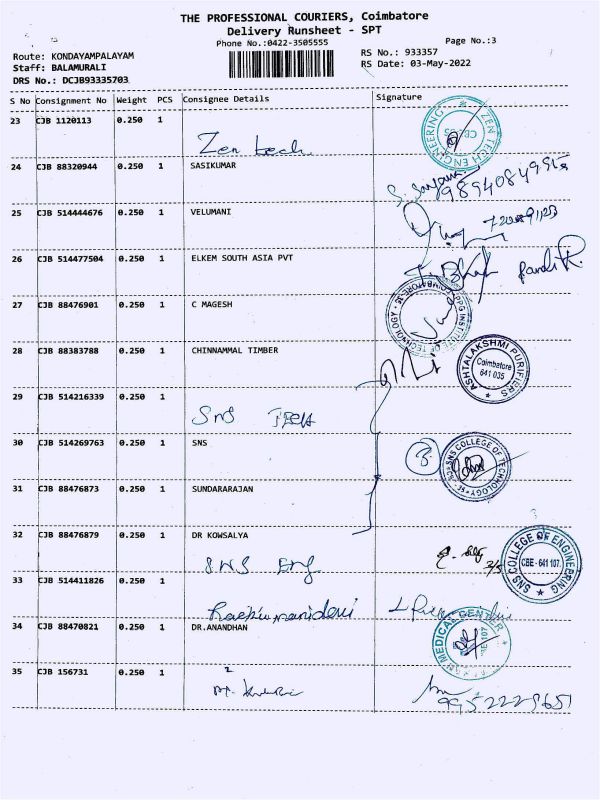 THE PROFESSIONAL COURIERS, Coimbatore
Delivery Runsheet - SPT
Phone No.:0422-3505555
Page No.:3
Route: KONDAYAMPALAYAM
RS No.: 933357
Staff: BALAMURALI
RS Date: 03-May-2022
DRS No.: DCJB93335703
S No Consignment No Weight PCS Consignee Details Signature
23 CJB 1120113 0.250 1
Zen tech
ZEN TECH ENGINEERING
24 CJB 88320944 0.250 1 SASIKUMAR
9894084995
25 CJB 514444676 0.250 1 VELUMANI
26 CJB 514477504 0.250 1 ELKEM SOUTH ASIA PVT
27 CJB 88476901 0.250 1 C MAGESH
PPG INSTITUTE OF TECHNOLOGY
28 CJB 88383788 0.250 1 CHINNAMMAL TIMBER
ASHTALAKSHMI PURIFIERS
Coimbatore
641 035
29 CJB 514216339 0.250 1
SNS
30 CJB 514269763 0.250 1 SNS
SNS COLLEGE OF TECHNOLOGY
31 CJB 88476873 0.250 1 SUNDARARAJAN
32 CJB 88476879 0.250 1 DR KOWSALYA
SNS Eng
SNS COLLEGE OF ENGINEERING
CBE - 641 107.
33 CJB 514411826 0.250 1
34 CJB 88470821 0.250 1 DR.ANANDHAN
MEDICAL CENTER
35 CJB 156731 0.250 1